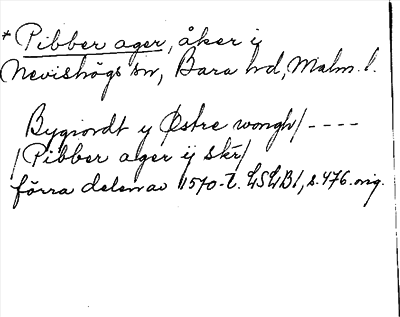 * Pibber ager, åker i
Nevishögs sn, Bara hd, Malm. l.
Bygiordt y Østre wongh/ - - - -
/Pibber ager ij skr/
förra delen av 1570-t. LSLB1, s. 476. orig.